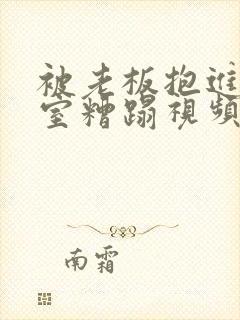 被老板抱进
室糟蹋视频
南霜